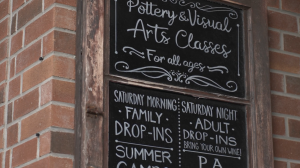 Pottery & Visual
Arts Classes
For all ages
SATURDAY MORNING
FAMILY
DROP-INS
SUMMER
SATURDAY NIGHT
ADULT
DROP-INS
BRING YOUR OWN WINE!